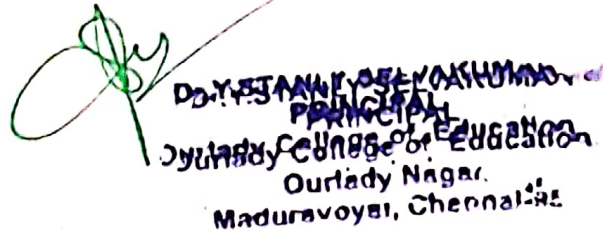 Dr. Y. STANLEY SELVAKUMAR
PRINCIPAL
Ourlady College of Education
Ourlady Nagar,
Maduravoyal, Chennai-